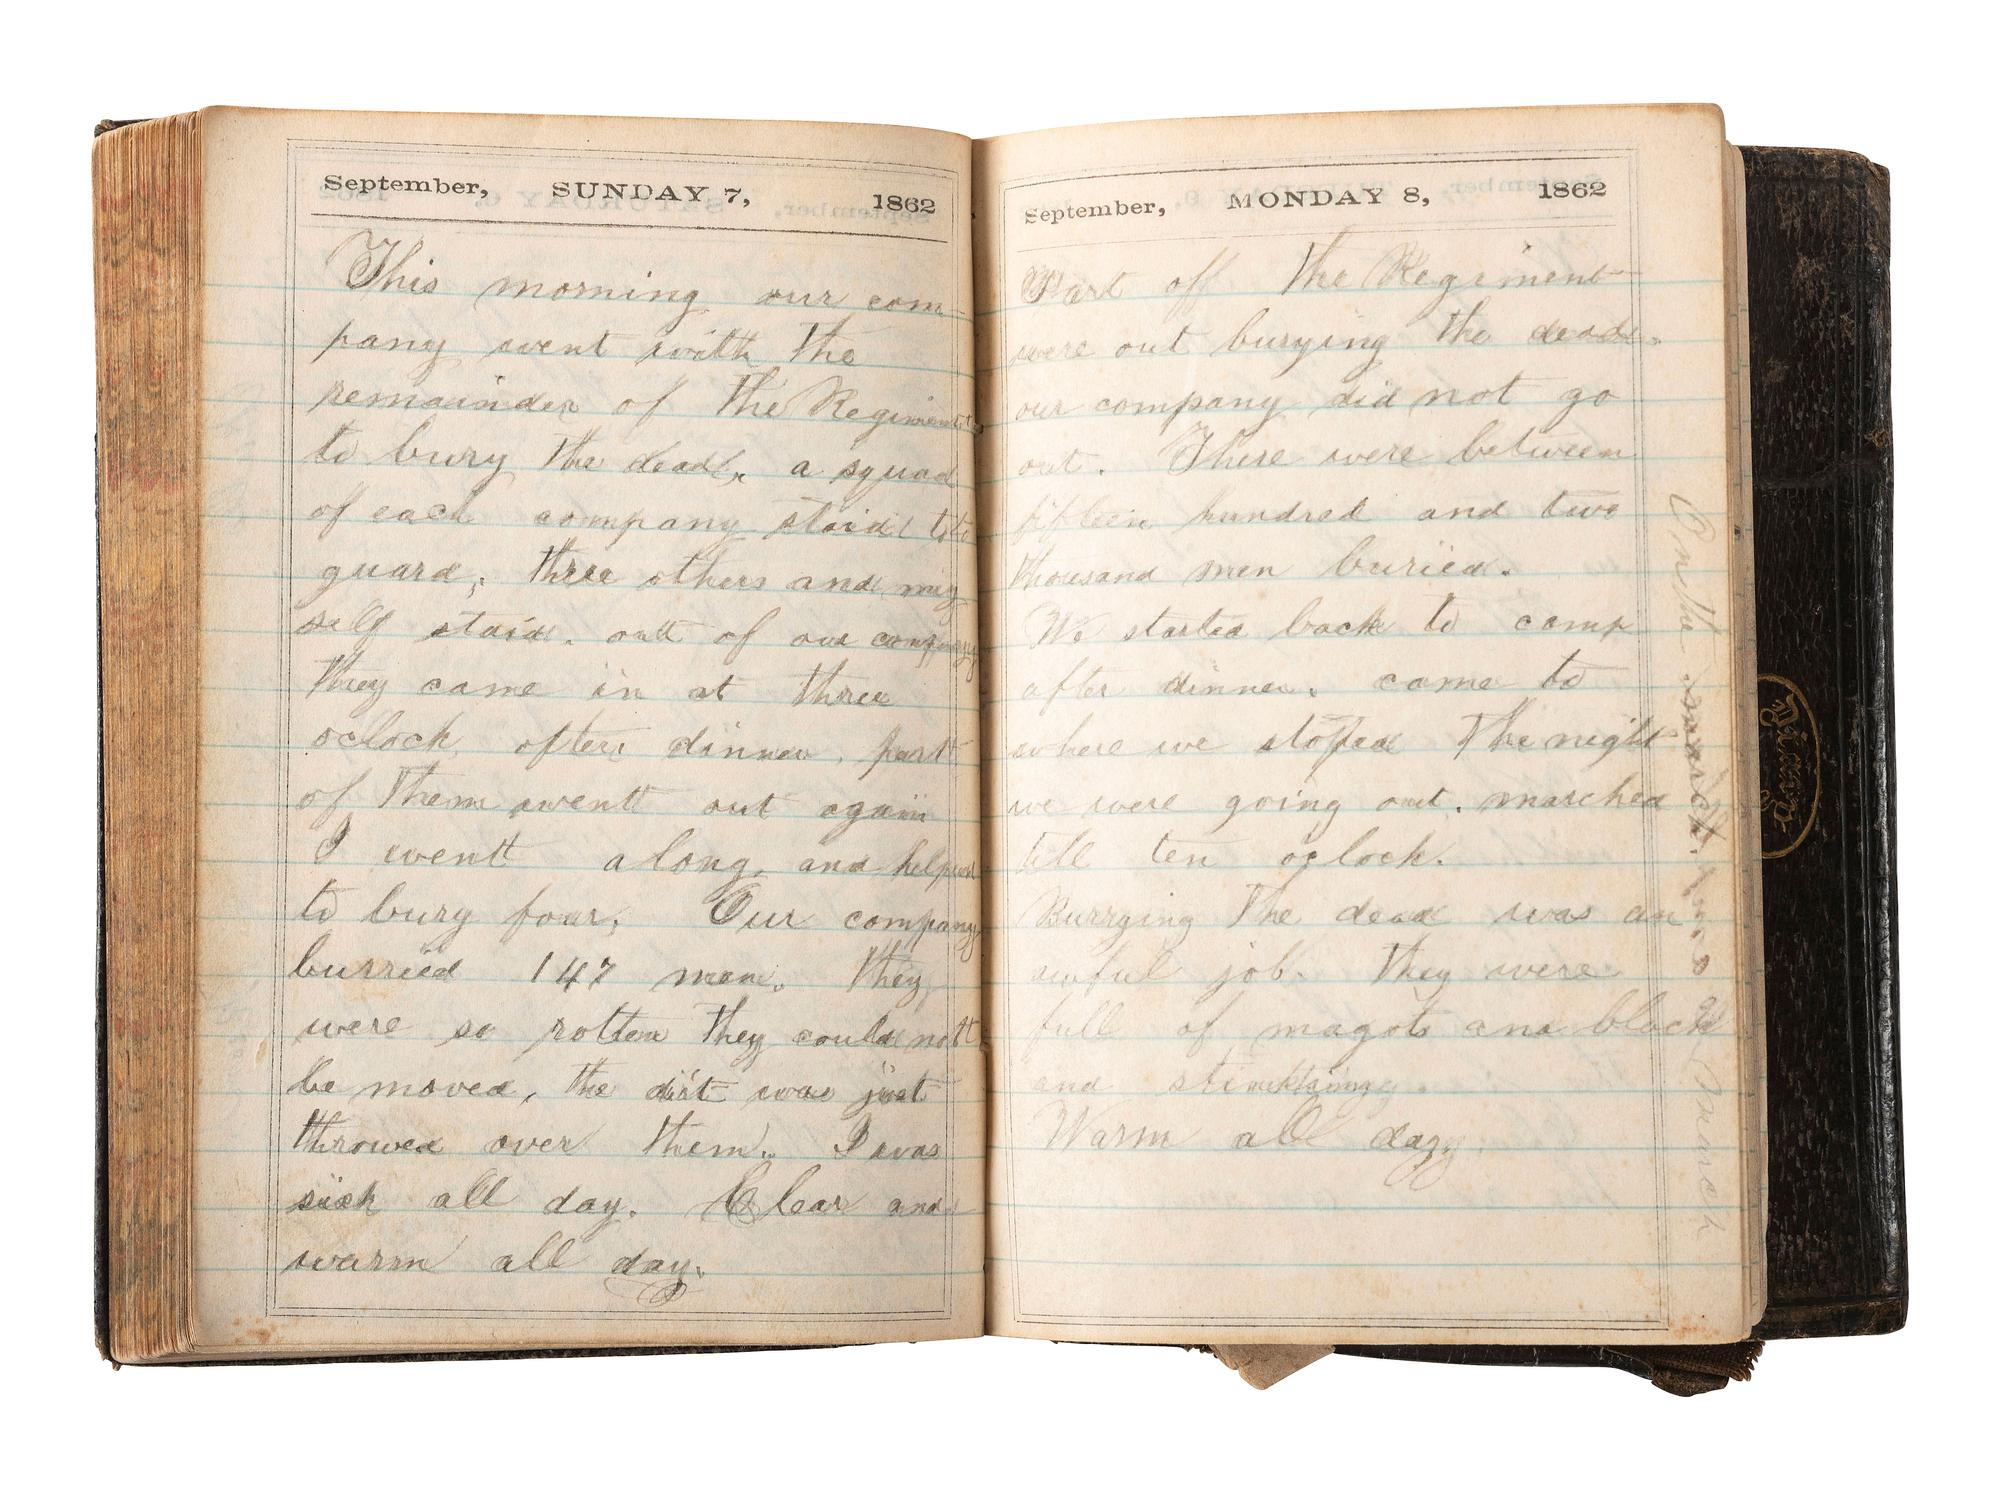 September, SUNDAY 7, 1862
This morning our com-
pany went with the
remainder of the Regiment
to bury the dead, a squad
of each company staid to
guard, three others and my
self staid. out of our company
they came in at three
oclock, after dinner, part
of them went out again
I went along, and helped
to bury four, Our company
burried 147 men. They
were so rotten they could not
be moved, the dirt was just
throwed over them. I was
sick all day. Clear and
warm all day.
September, MONDAY 8, 1862
Part off the Regiment
were out burying the dead.
our company did not go
out. There were between
fifteen hundred and two
thousand men buried.
We started back to camp
after dinner. came to
where we stoped The night
we were going out. marched
till ten oclock.
Burrying the dead was an
awful job. They were
full of magots and black
and stinking.
Warm all day.
On the march.
March
Diary